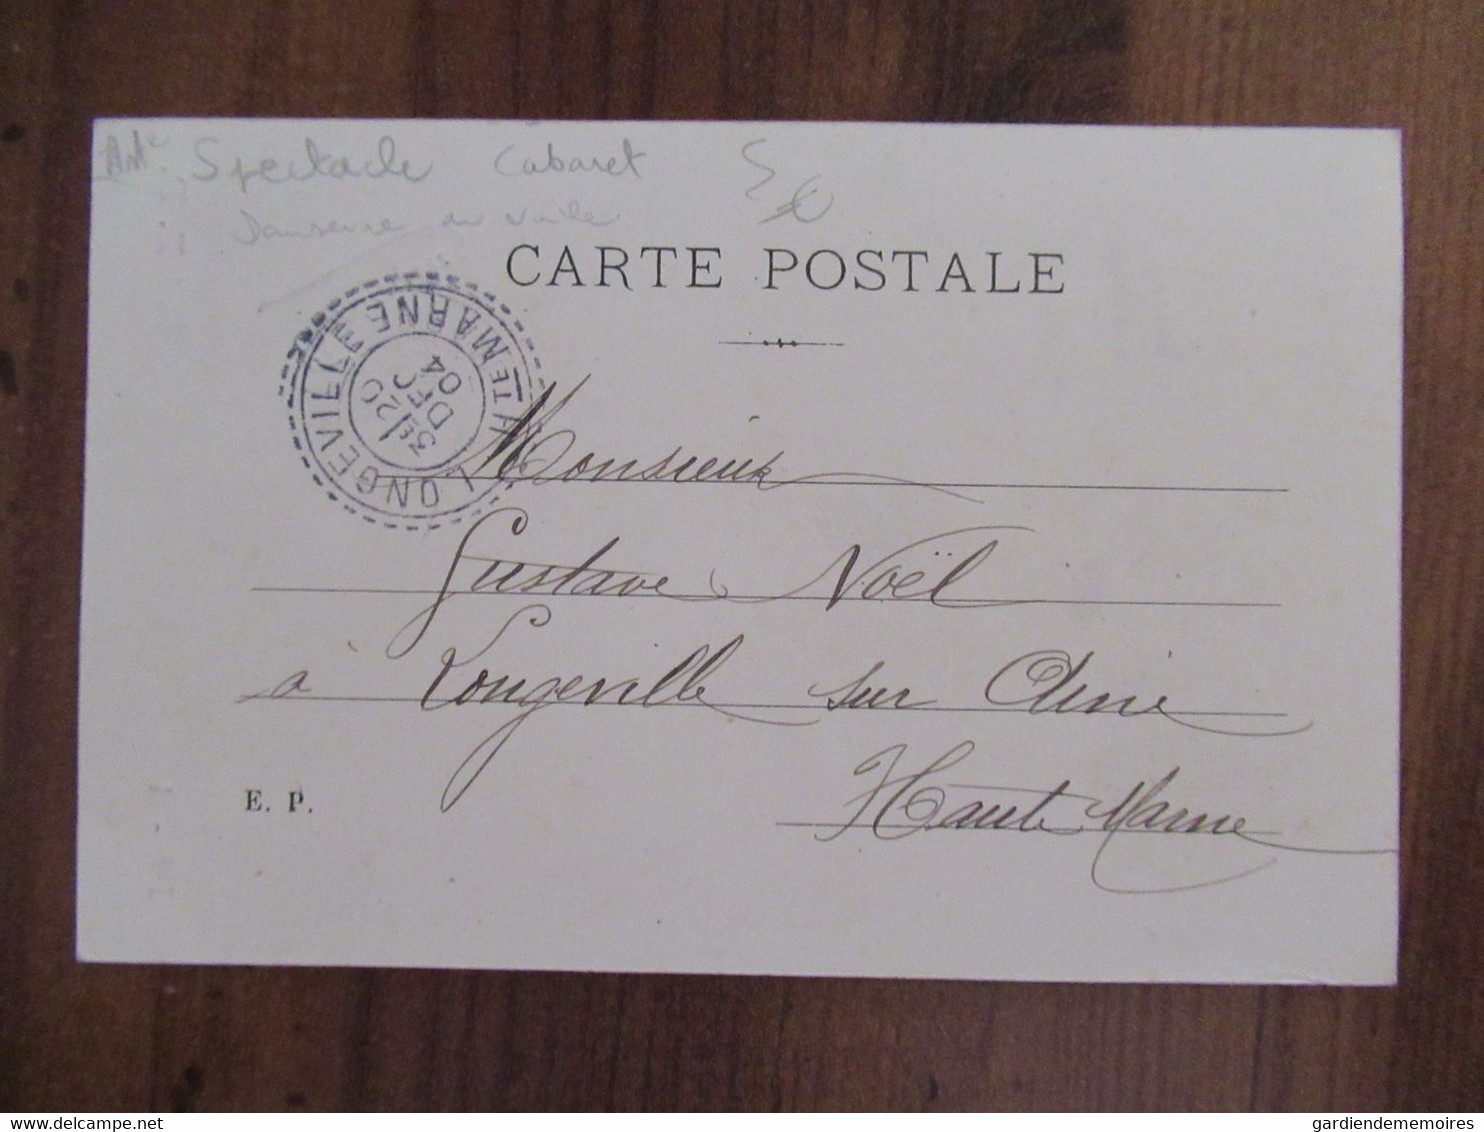 Art. Spectacle Cabaret 5 €
Danseuse au voile
CARTE POSTALE
LONGEVILLE HTE MARNE
3E/20
DEC
04
Monsieur
Gustave Noël
à Longeville sur Aine
E. P.
Haute Marne
delcampe.net
gardiendememoires